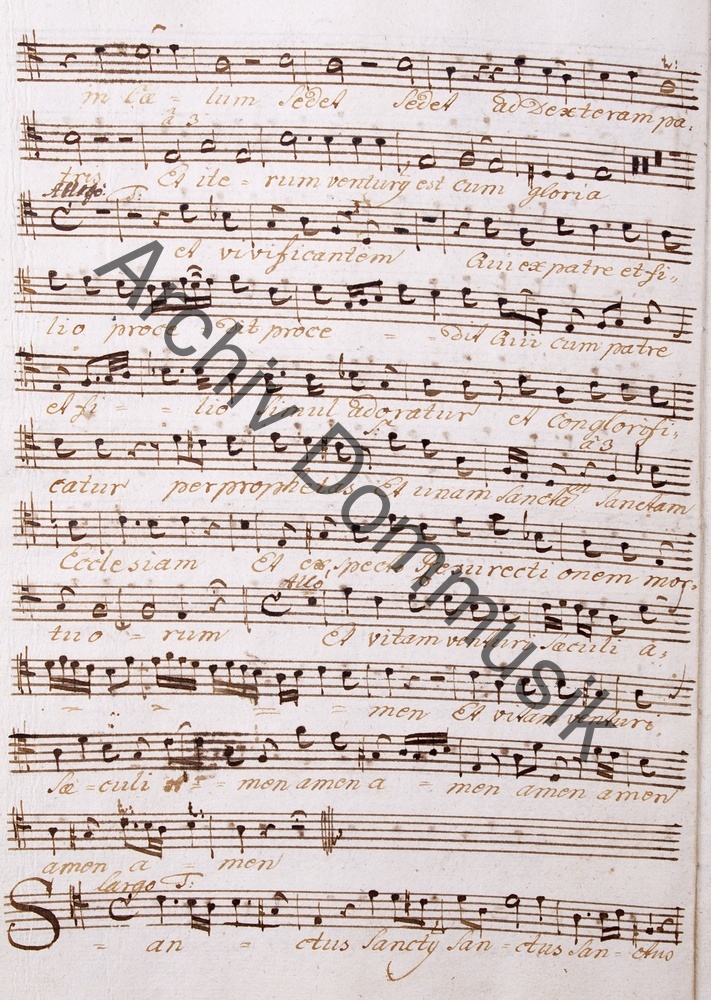 in Cæ = lum sedet sedet ad Dexteram pa:
à 3
tris Et ite = rum venturq est cum gloria
Allego. T:
et vivificantem Qui ex patre et fi,,
lio proce dit proce = = dit Qui cum patre
et fi = = lio simul adoratur et conglorifi,,
S: à 3
catur per prophetas Et unam sanctã sanctam
Ecclesiam Et expecto Resurecti onem mor,,
Allo
tuo = rum Et vitam venturi sæculi a,,
= = = = men Et vitam venturi
sæ = culi = = men amen a = men amen amen
amen a = men
largo T:
San = ctus Sanctq San = ctus San = ctus
Archiv Dommusik